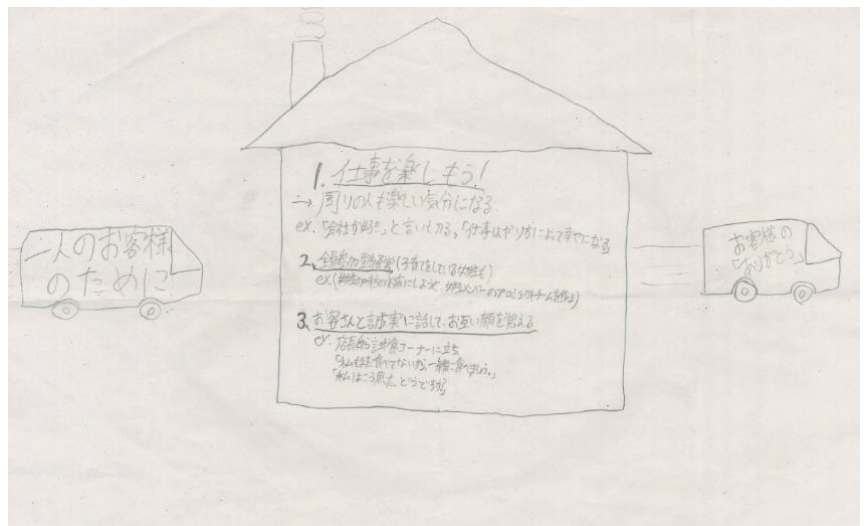 一人のお客様
のために
1. 仕事を楽しもう!
→ 周りの人も楽しい気分になる
ex.「会社が好き」と言いもれる、「仕事はやり方によって幸せになる
2. 全員参加型経営(子育てをしている女性も)
ex.
3. お客さんと誠実に話して、お互い顔を覚える
ex. 店長自ら試食コーナーに立ち
「私もまだ食べてないから一緒に食べましょう。」
「私はこう思った。どうですか」
お客様の
「ありがとう」